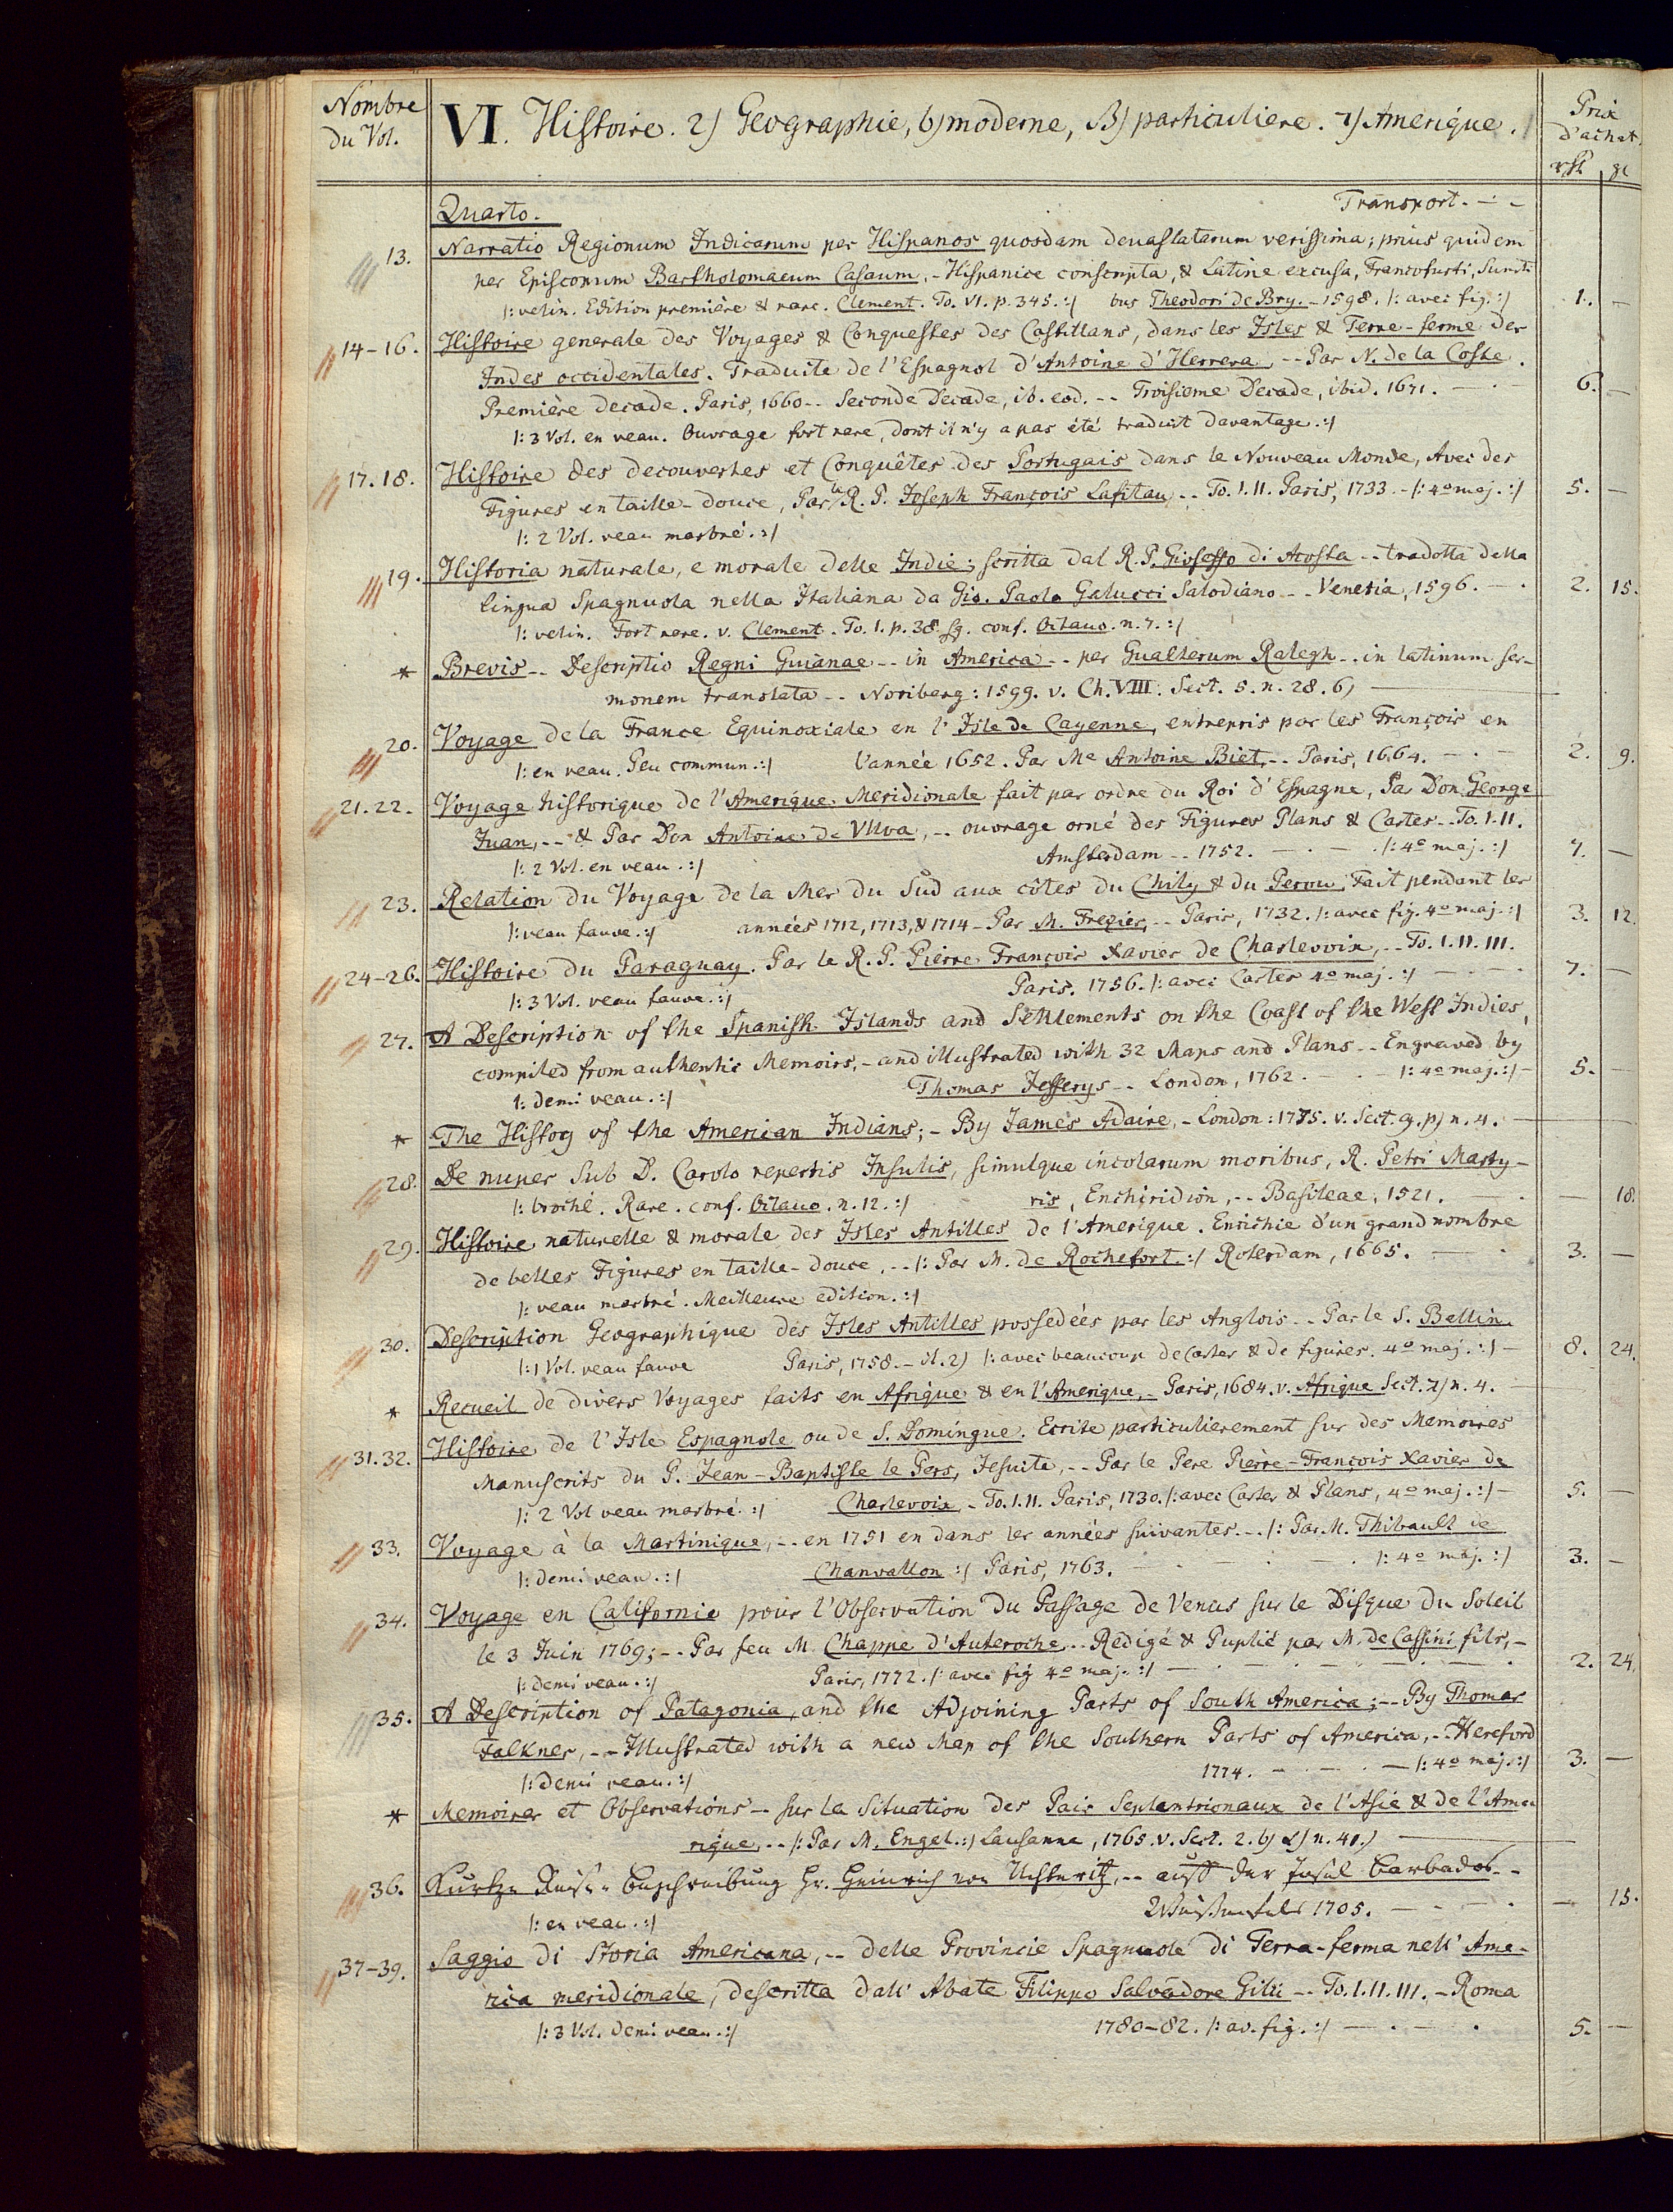 Nombre du Vol.
VI. Histoire. 2) Geographie, b) moderne, β) particuliere. 7) Amerique.
Prix d'achat.
Quarto. Transport. - -
13. Narratio Regionum Indicarum per Hispanos quosdam devastatarum verissima; prius quidem
per Episcopum Bartholomaeum Casaum, - Hispanice conscripta, & Latine excusa, Francofurti, Sumti
|: velin. Edition première & rare. Clement. To. VI. p. 345. :| bus Theodori de Bry. - 1598. |: avec fig. :| 1. -
14-16. Histoire generale des Voyages & Conquestes des Castillans, dans les Isles & Terre-ferme des
Indes occidentales. Traduite de l'Espagnol d'Antoine d'Herrera, -- Par N. de la Coste.
Première decade. Paris, 1660 -- Seconde Decade, ib. eod. -- Troisieme Decade, ibid. 1671. - - 6. -
|: 3 Vol. en veau. Ouvrage fort rare, dont il n'y a pas été traduit davantage. :|
17.18. Histoire des decouvertes et Conquêtes des Portugais dans le Nouveau Monde, Avec des
Figures en taille-douce, Par le R. P. Joseph François Lafitau, -- To. I. II. Paris, 1733. - |: 4o maj. :| 5. -
|: 2 Vol. veau marbré. :|
19. Historia naturale, e morale delle Indie; scritta dal R. P. Gioseffo di Acosta -- tradotta della
lingua Spagnuola nella Italiana da Gio. Paolo Galucci Salodiano -- Venetia, 1596. - . 2. 15.
|: velin. Fort rare. v. Clement. To. 1. p. 38. sq. conf. Octavo. n. 7. :|
* Brevis -- Descriptio Regni Guianae -- in America -- per Gualterum Ralegh -- in latinum ser-
monem translata -- Noriberg: 1599. v. Ch. VIII. Sect. 5. n. 28. 6)
20. Voyage de la France Equinoxiale en l'Isle de Cayenne, entrepris par les François en
|: en veau. Peu commun. :| l'année 1652. Par Me Antoine Biet, -- Paris, 1664. - . - 2. 9.
21.22. Voyage historique de l'Amerique Meridionale fait par ordre du Roi d'Espagne, Par Don George
Juan, -- & Par Don Antoine de Ulloa, -- ouvrage orné des Figures Plans & Cartes -- To. I. II.
|: 2 Vol. en veau. :| Amsterdam -- 1752. - . - . |: 4o maj. :| 7. -
23. Relation du Voyage de la Mer du Sud aux côtes du Chily & du Perou, Fait pendant les
|: veau fauve. :| années 1712, 1713, & 1714 - Par M. Frezier, -- Paris, 1732. |: avec fig. 4o maj. :| 3. 12.
24-26. Histoire du Paraguay. Par le R. P. Pierre François Xavier de Charlevoix, -- To. I. II. III.
|: 3 Vol. veau fauve. :| Paris. 1756. |: avec Cartes 4o maj. :| - - - 7. -
27. A Description of the Spanish Islands and Settlements on the Coast of the West Indies,
compiled from authentic Memoirs, - and illustrated with 32 Maps and Plans -- Engraved by
|: demi veau. :| Thomas Jefferys -- London, 1762. - . - |: 4o maj. :| - 5. -
* The History of the American Indians; - By James Adaire, - London: 1775. v. Sect. 9. p) n. 4.
28. De nuper sub D. Carolo repertis Insulis, simulque incolarum moribus, R. Petri Marty-
|: broché. Rare. conf. Octavo. n. 12. :| ris, Enchiridion, -- Basileae, 1521. - . - 18.
29. Histoire naturelle & morale des Isles Antilles de l'Amerique. Enrichie d'un grand nombre
de belles Figures en taille-douce, -- |: Par M. de Rochefort. :| Roterdam, 1665. - . 3. -
|: veau marbré. Meilleure edition. :|
30. Description Geographique des Isles Antilles possedées par les Anglois -- Par le S. Bellin.
|: 1 Vol. veau fauve Paris, 1758. - |: avec beaucoup de Cartes & de figures. 4o maj. :| - 8. 24.
* Recueil de divers Voyages faits en Afrique & en l'Amerique, - Paris, 1684. v. Afrique Sect. 7) n. 4.
31.32. Histoire de l'Isle Espagnole ou de S. Domingue. Ecrite particulierement sur des Memoires
Manuscrits du P. Jean-Baptiste le Pers, Jesuite, -- Par le Pere Pierre-François Xavier de
|: 2 Vol veau marbré. :| Charlevoix - To. I. II. Paris, 1730. |: avec Cartes & Plans, 4o maj. :| - 5. -
33. Voyage à la Martinique, -- en 1751 en dans les années suivantes. -- |: Par M. Thibault de
|: demi veau. :| Chanvallon :| Paris, 1763. - . - . |: 4o maj. :| 3. -
34. Voyage en Californie pour l'Observation du Passage de Venus sur le Disque du Soleil
le 3 Juin 1769; -- Par feu M. Chappe d'Auteroche, -- Redigé & Puplié par M. de Cassini fils, -
|: demi veau. :| Paris, 1772. |: avec fig 4o maj. :| - . - . - . 2. 24.
35. A Description of Patagonia, and the Adjoining Parts of South America; -- By Thomas
Falkner, -- Illustrated with a new Map of the Southern Parts of America, -- Hereford
|: demi veau. :| 1774. - . - . - |: 4o maj. :| 3. -
* Memoires et Observations -- sur la Situation des Pais Septentrionaux de l'Asie & de l'Ame
rique, -- |: Par M. Engel. :| Lausanne, 1765. v. Sect. 2. b) α) n. 41.)
36. Kurtze Reise-Beschreibung Hr. Heinrich von Uchteritz, -- auff der Insul Barbados --
|: en veau. :| Weissenfels 1705. - . - . - 15.
37-39. Saggio di Storia Americana, -- delle Provincie Spagnuole di Terra-ferma nell' Ame-
rica meridionale, descritta dall' Abate Filippo Salvadore Gilii -- To. I. II. III. - Roma
|: 3 Vol. demi veau. :| 1780-82. |: av. fig. :| - . - . 5. -